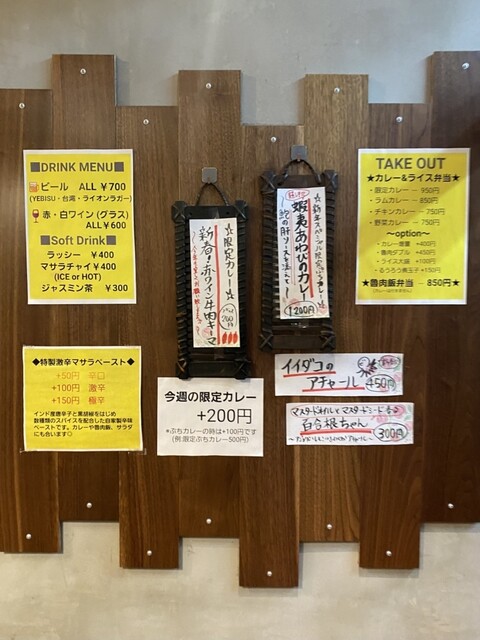 ■DRINK MENU■
ビール ALL ￥700
(YEBISU・台湾・ライオンラガー)
赤・白ワイン (グラス)
ALL￥600
■Soft Drink■
ラッシー ￥400
マサラチャイ ￥400
(ICE or HOT)
ジャスミン茶 ￥300
◆特製激辛マサラペースト◆
+50円 辛口
+100円 激辛
+150円 極辛
インド産唐辛子と黒胡椒をはじめ
数種類のスパイスを配合した自家製辛味
ペーストです。カレーや魯肉飯、サラダ
にも合います♡
☆限定カレー☆
新春!赤ワイン牛肉キーマ
今週の限定カレー
+200円
*ぷちカレーの時は+100円です
(例:限定ぷちカレー500円)
☆新年スペシャル限定カレー☆
蝦夷あわびのカレー
1200円
イイダコの
アチャール
450円
マスタードオイルとマスタードシード香る
百合根ちゃん
300円
TAKE OUT
★カレー&ライス弁当★
・限定カレー ― 950円
・ラムカレー ― 850円
・チキンカレー ― 750円
・野菜カレー ― 750円
～option～
・カレー増量 +400円
・魯肉ダブル +450円
・ライス大盛 +100円
・るうろう煮玉子 +150円
★魯肉飯弁当 ― 850円★